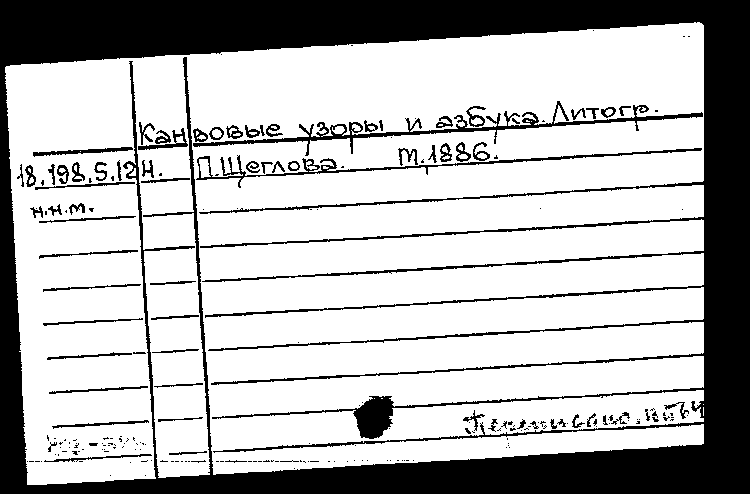 Канвовые узоры и азбука. Литогр.
18.198.5.124. П. Щеглова. М., 1886.
н.н.т.
Переписано.